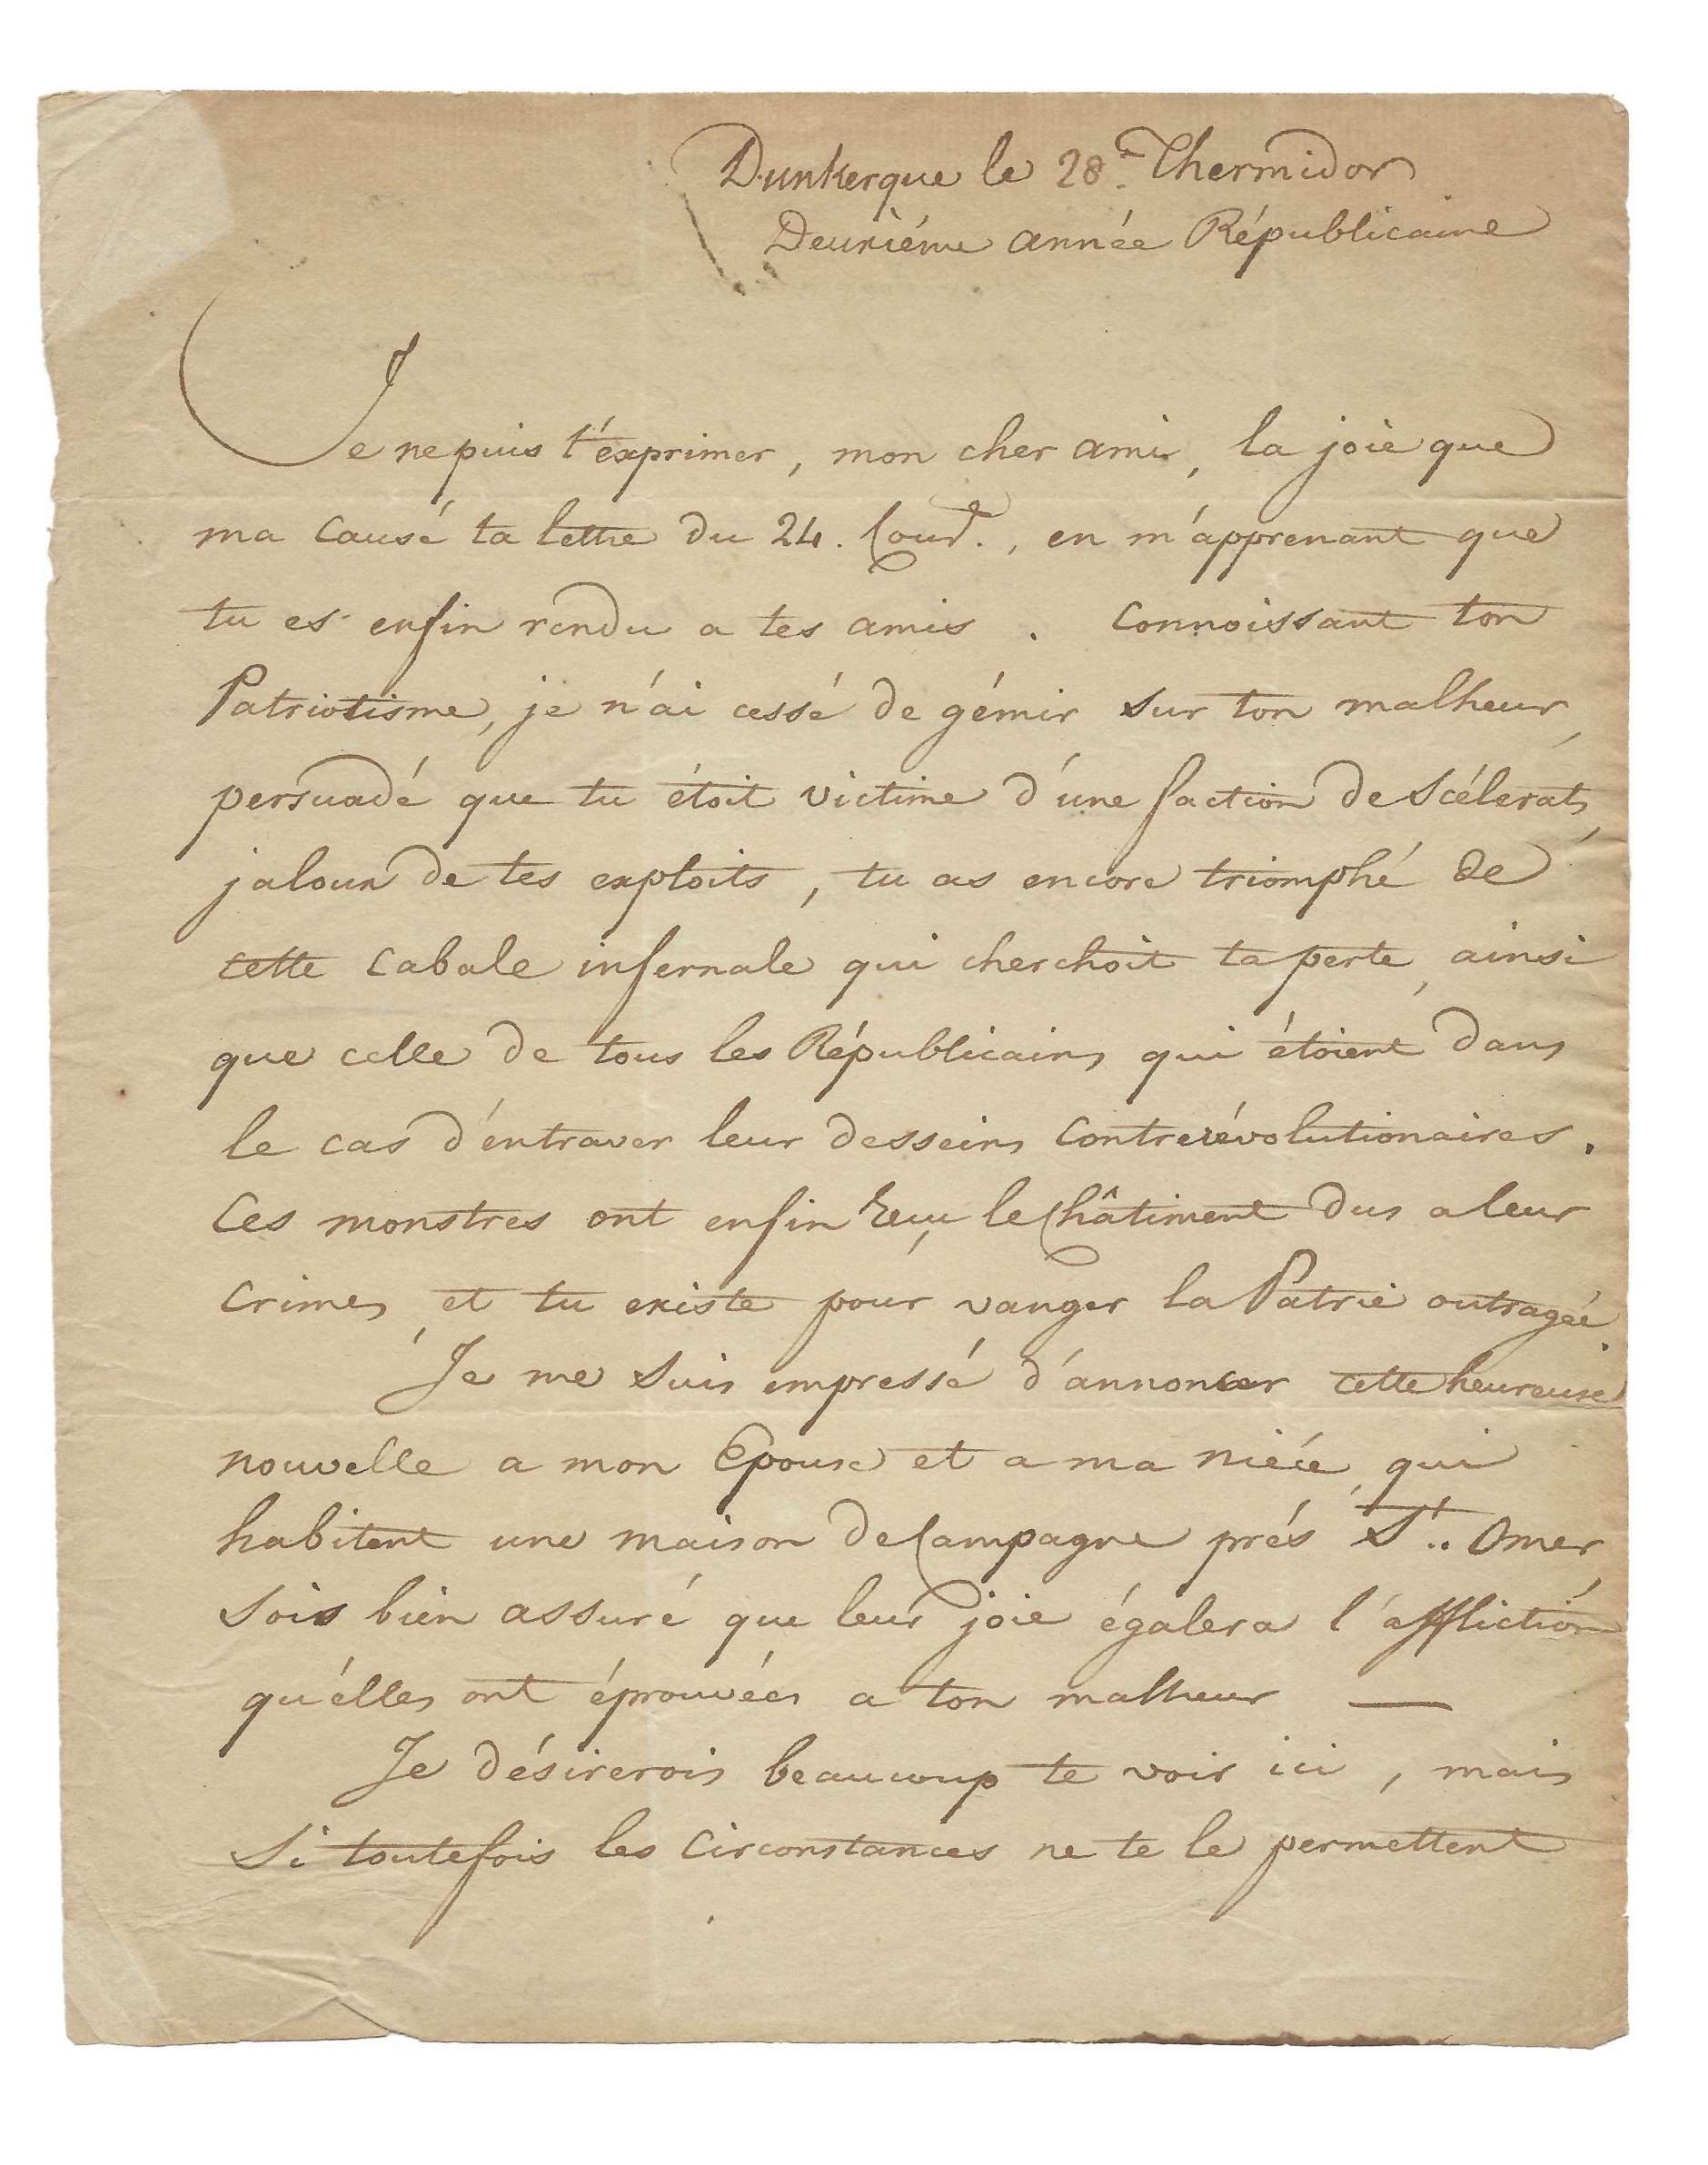 Dunkerque le 28.e Thermidor
Deuxiéme année Républicaine
Je ne puis t'exprimer, mon cher ami, la joie que
ma causé ta lettre du 24. Cour.t, en m'apprenant que
tu es enfin rendu a tes amis. Connoissant ton
Patriotisme, je n'ai cessé de gémir sur ton malheur,
persuadé que tu étoit victime d'une faction de Scélerats,
jaloux de tes exploits, tu as encore triomphé de
cette Cabale infernale qui cherchoit ta perte, ainsi
que celle de tous les Républicains qui étoient dans
le cas d'entraver leur desseins Contrerévolutionaires.
Ces monstres ont enfin reçu le Châtiment dus a leur
Crimes, et tu existe pour vanger la Patrie outragée.
Je me suis empressé d'annoncer cette heureuse
nouvelle a mon Epouse et a ma niéce, qui
habitent une maison de Campagne prés St. Omer,
Sois bien assuré que leur joie égalera l'affliction
qu'elles ont éprouvées a ton malheur —
Je désirerois beaucoup te voir ici, mais
Si toutefois les Circonstances ne te le permettent